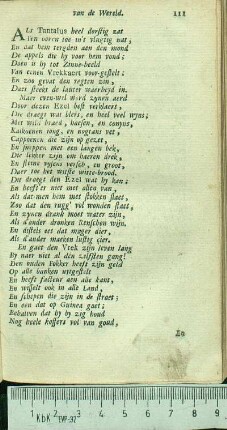 van de Wereld. 111
ALs Tantalus heel dorstig zat
Ten ooren toe in 't vlugtig nat,
En dat hem tergden aen den mond
De appels die hy voor hem vond;
Doen u hy tot Zinne-beeld
Van eenen Vrekkaert voor-gestelt:
En zoo gevat den regten zin,
Daer steekt de lanter waerheyd in.
Maer even-wel werd zynen aerd
Door dezen Ezel best verklaert,
Die draegt was bleef, en heel veel wyns;
Met wild braed, haesen, en conyns,
Kalkoenen jong, en nogtans vet,
Cappoenen die zijn op gezet,
En snippen met een langen bek,
En kleine vysch versch, en groot,
Daer toe het witste witte-brood.
Die draegt den Ezel wat hy kan;
En heeft 'er niet met allen van,
Als dat-men hem met stokken slaet,
Zoo dat den rugg' vol wonden staet,
En zynen drank moet water zijn,
Als d'ander dronken Renschen wijn.
En distels eet dat mager dier,
Als d'ander maeken lustig cier.
En gaet den Vrek zijn leven lang
By naer niet al den zelfsten gang?
Den ouden Fokker heeft zijn geld
Op alle banken uytgestelt
En heeft facteur aen alle kant,
En wissels ook in alle Land,
En schepen die zijn in de straet;
En een dat op Guinea gaet;
Behalven dat hy by zig houd
Nog heele koffers vol van goud,
En
1 2 3 4 5 6 7 8 9
KbK